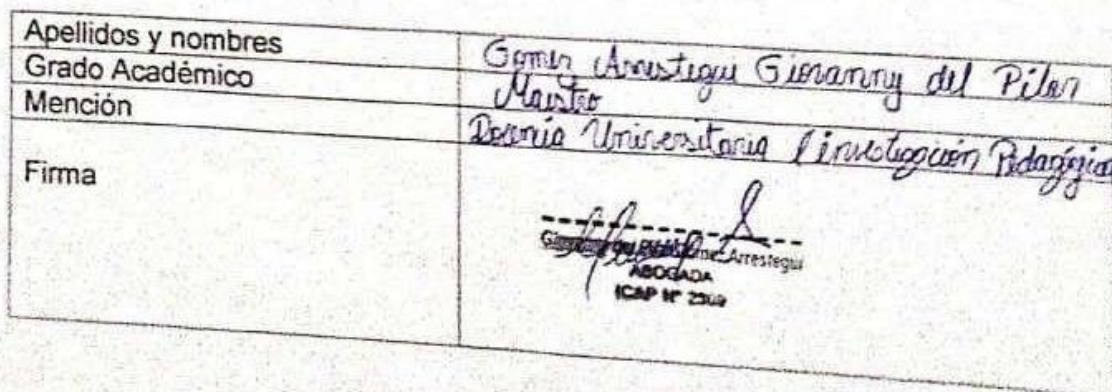 Apellidos y nombres Gomez Arrestegui Giovanny del Pilar
Grado Académico Maestro
Mención Docencia Universitaria e investigación Pedagógica
Firma
Arrestegui
ABOGADA
ICAP Nº